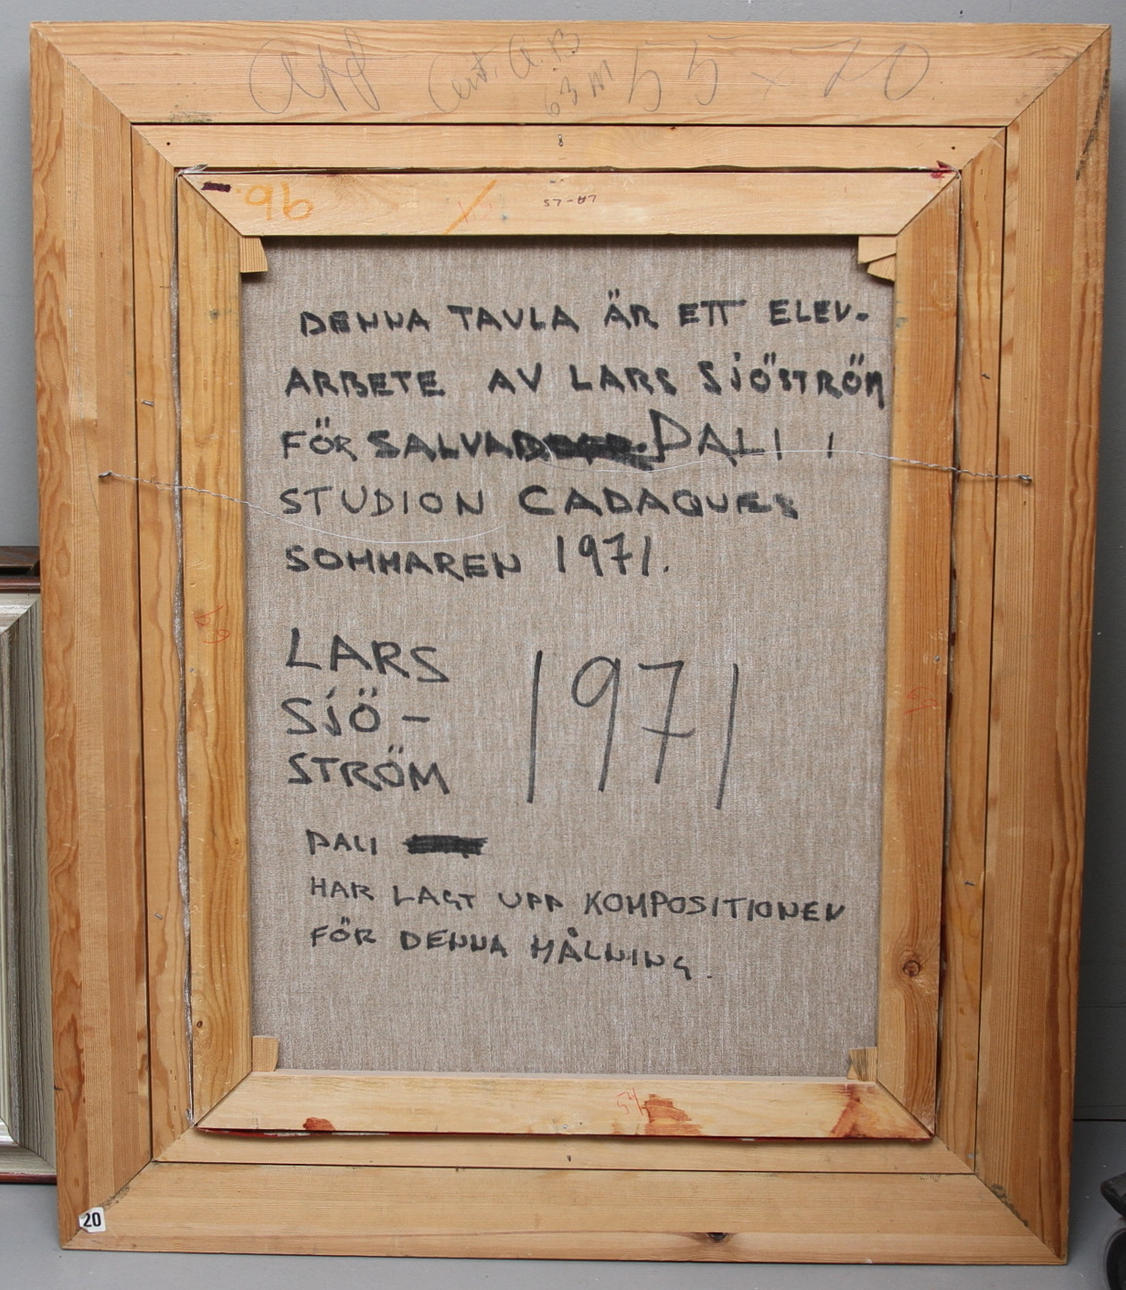 55 x 70
96
LA-LS
DENNA TAVLA ÄR ETT ELEV-
ARBETE AV LARS SJÖSTRÖM
FÖR SALVAD DALI I
STUDION CADAQUES
SOMMAREN 1971.
LARS
SJÖ-
STRÖM
1971
DALI
HAR LAGT UPP KOMPOSITIONEN
FÖR DENNA MÅLNING.
20